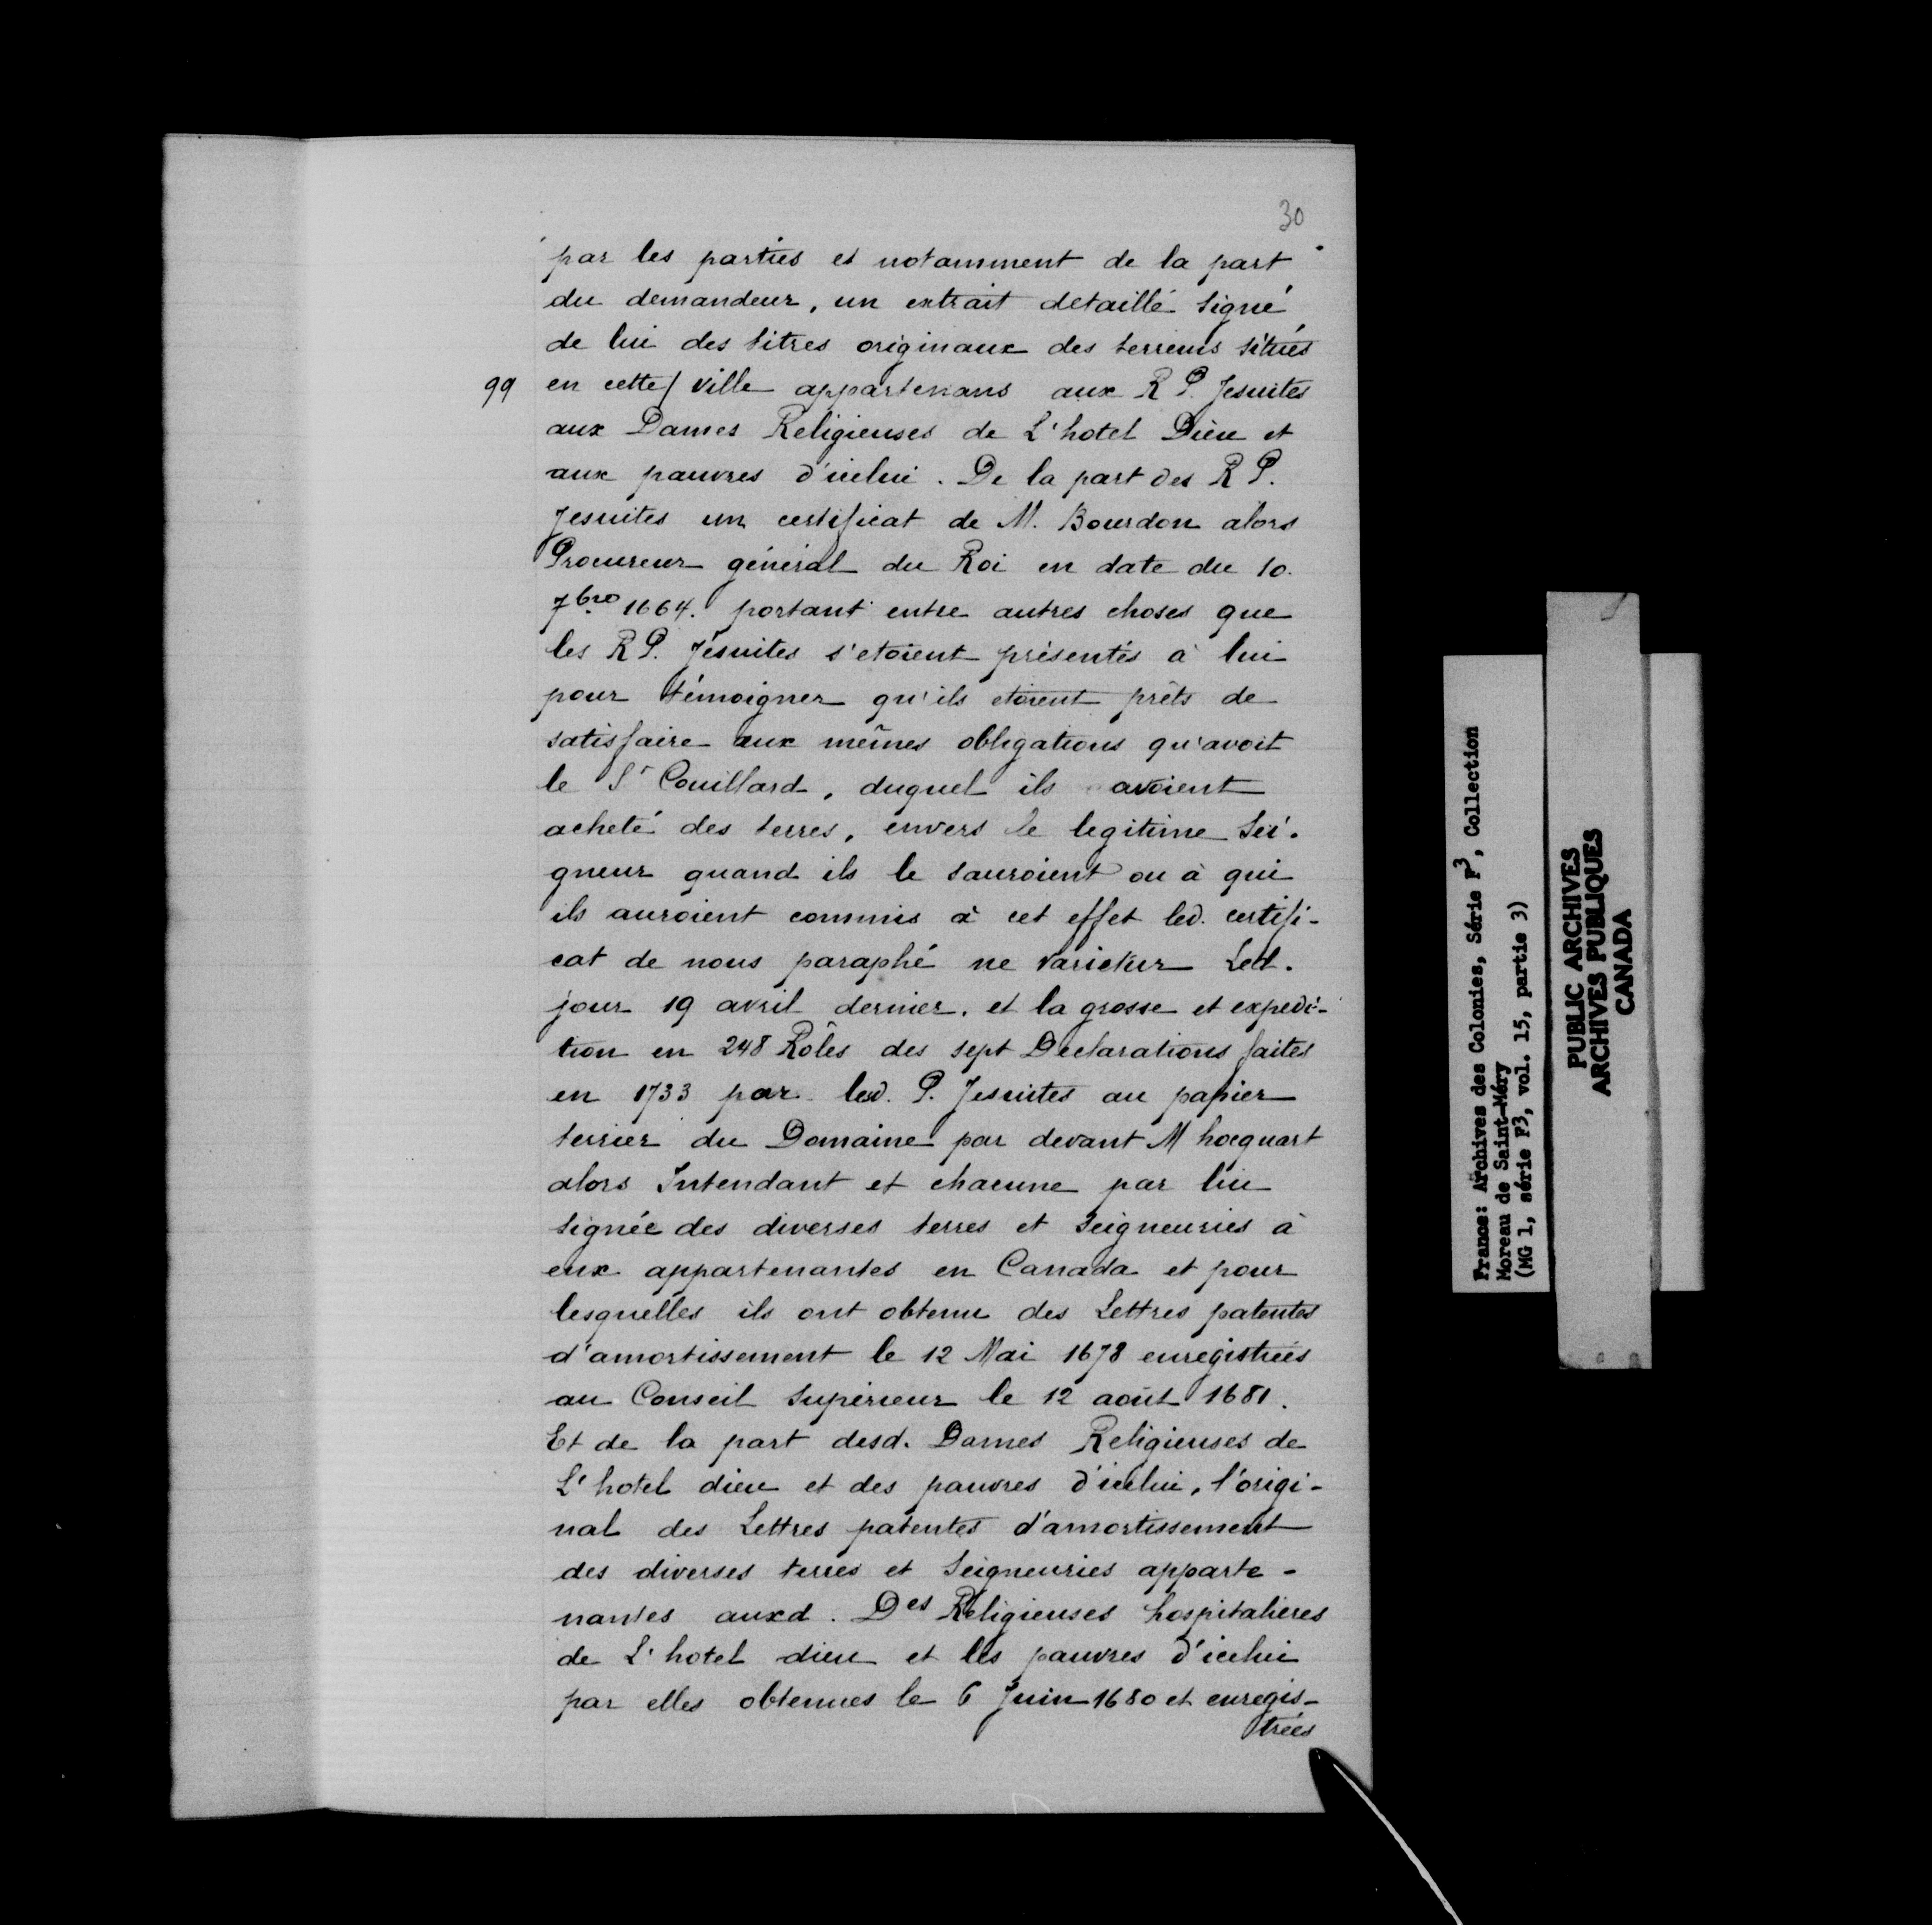 30
par les parties et notamment de la part
du demandeur, un extrait detaillé signé
de lui des titres originaux des terreins situés
99 en cette/ ville appartenans aux R P. Jesuites
aux Dames Religieuses de L'hotel Dieu et
aux pauvres d'icelui. De la part des R P.
Jesuites un certificat de M. Bourdon alors
Procureur général du Roi en date du 10.
7bre 1664. portant entre autres choses que
les R P. Jésuites s'etoient présentés à lui
pour témoigner qu'ils etoient prêts de
satisfaire aux mêmes obligations qu'avoit
le Sr Couillard, duquel ils avoient
acheté des terres, envers le legitime Sei-
gneur quand ils le sauroient ou à qui
ils auroient commis à cet effet led. certifi-
cat de nous paraphé ne varietur Led.
jour 19 avril dernier. et la grosse et expedi-
tion en 248 Rôles des sept Declarations faites
en 1733 par lesd. P. Jesuites au papier
terrier du Domaine par devant M hocquart
alors Intendant et chacune par lui
signée des diverses terres et seigneuries à
eux appartenantes en Canada et pour
lesquelles ils ont obtenu des Lettres patentes
d'amortissement le 12 Mai 1678 enregistrées
au Conseil Supérieur le 12 août 1681.
Et de la part desd. Dames Religieuses de
L'hotel dieu et des pauvres d'icelui, l'origi-
nal des Lettres patentes d'amortissement
des diverses terres et Seigneuries apparte-
nantes auxd. Des Religieuses hospitalieres
de L'hotel dieu et les pauvres d'icelui
par elles obtenues le 6 Juin 1680 et enregis-
trées
France: Archives des Colonies, Série F3, Collection
Moreau de Saint-Méry
(MG 1, série F3, vol. 15, partie 3)
PUBLIC ARCHIVES
ARCHIVES PUBLIQUES
CANADA